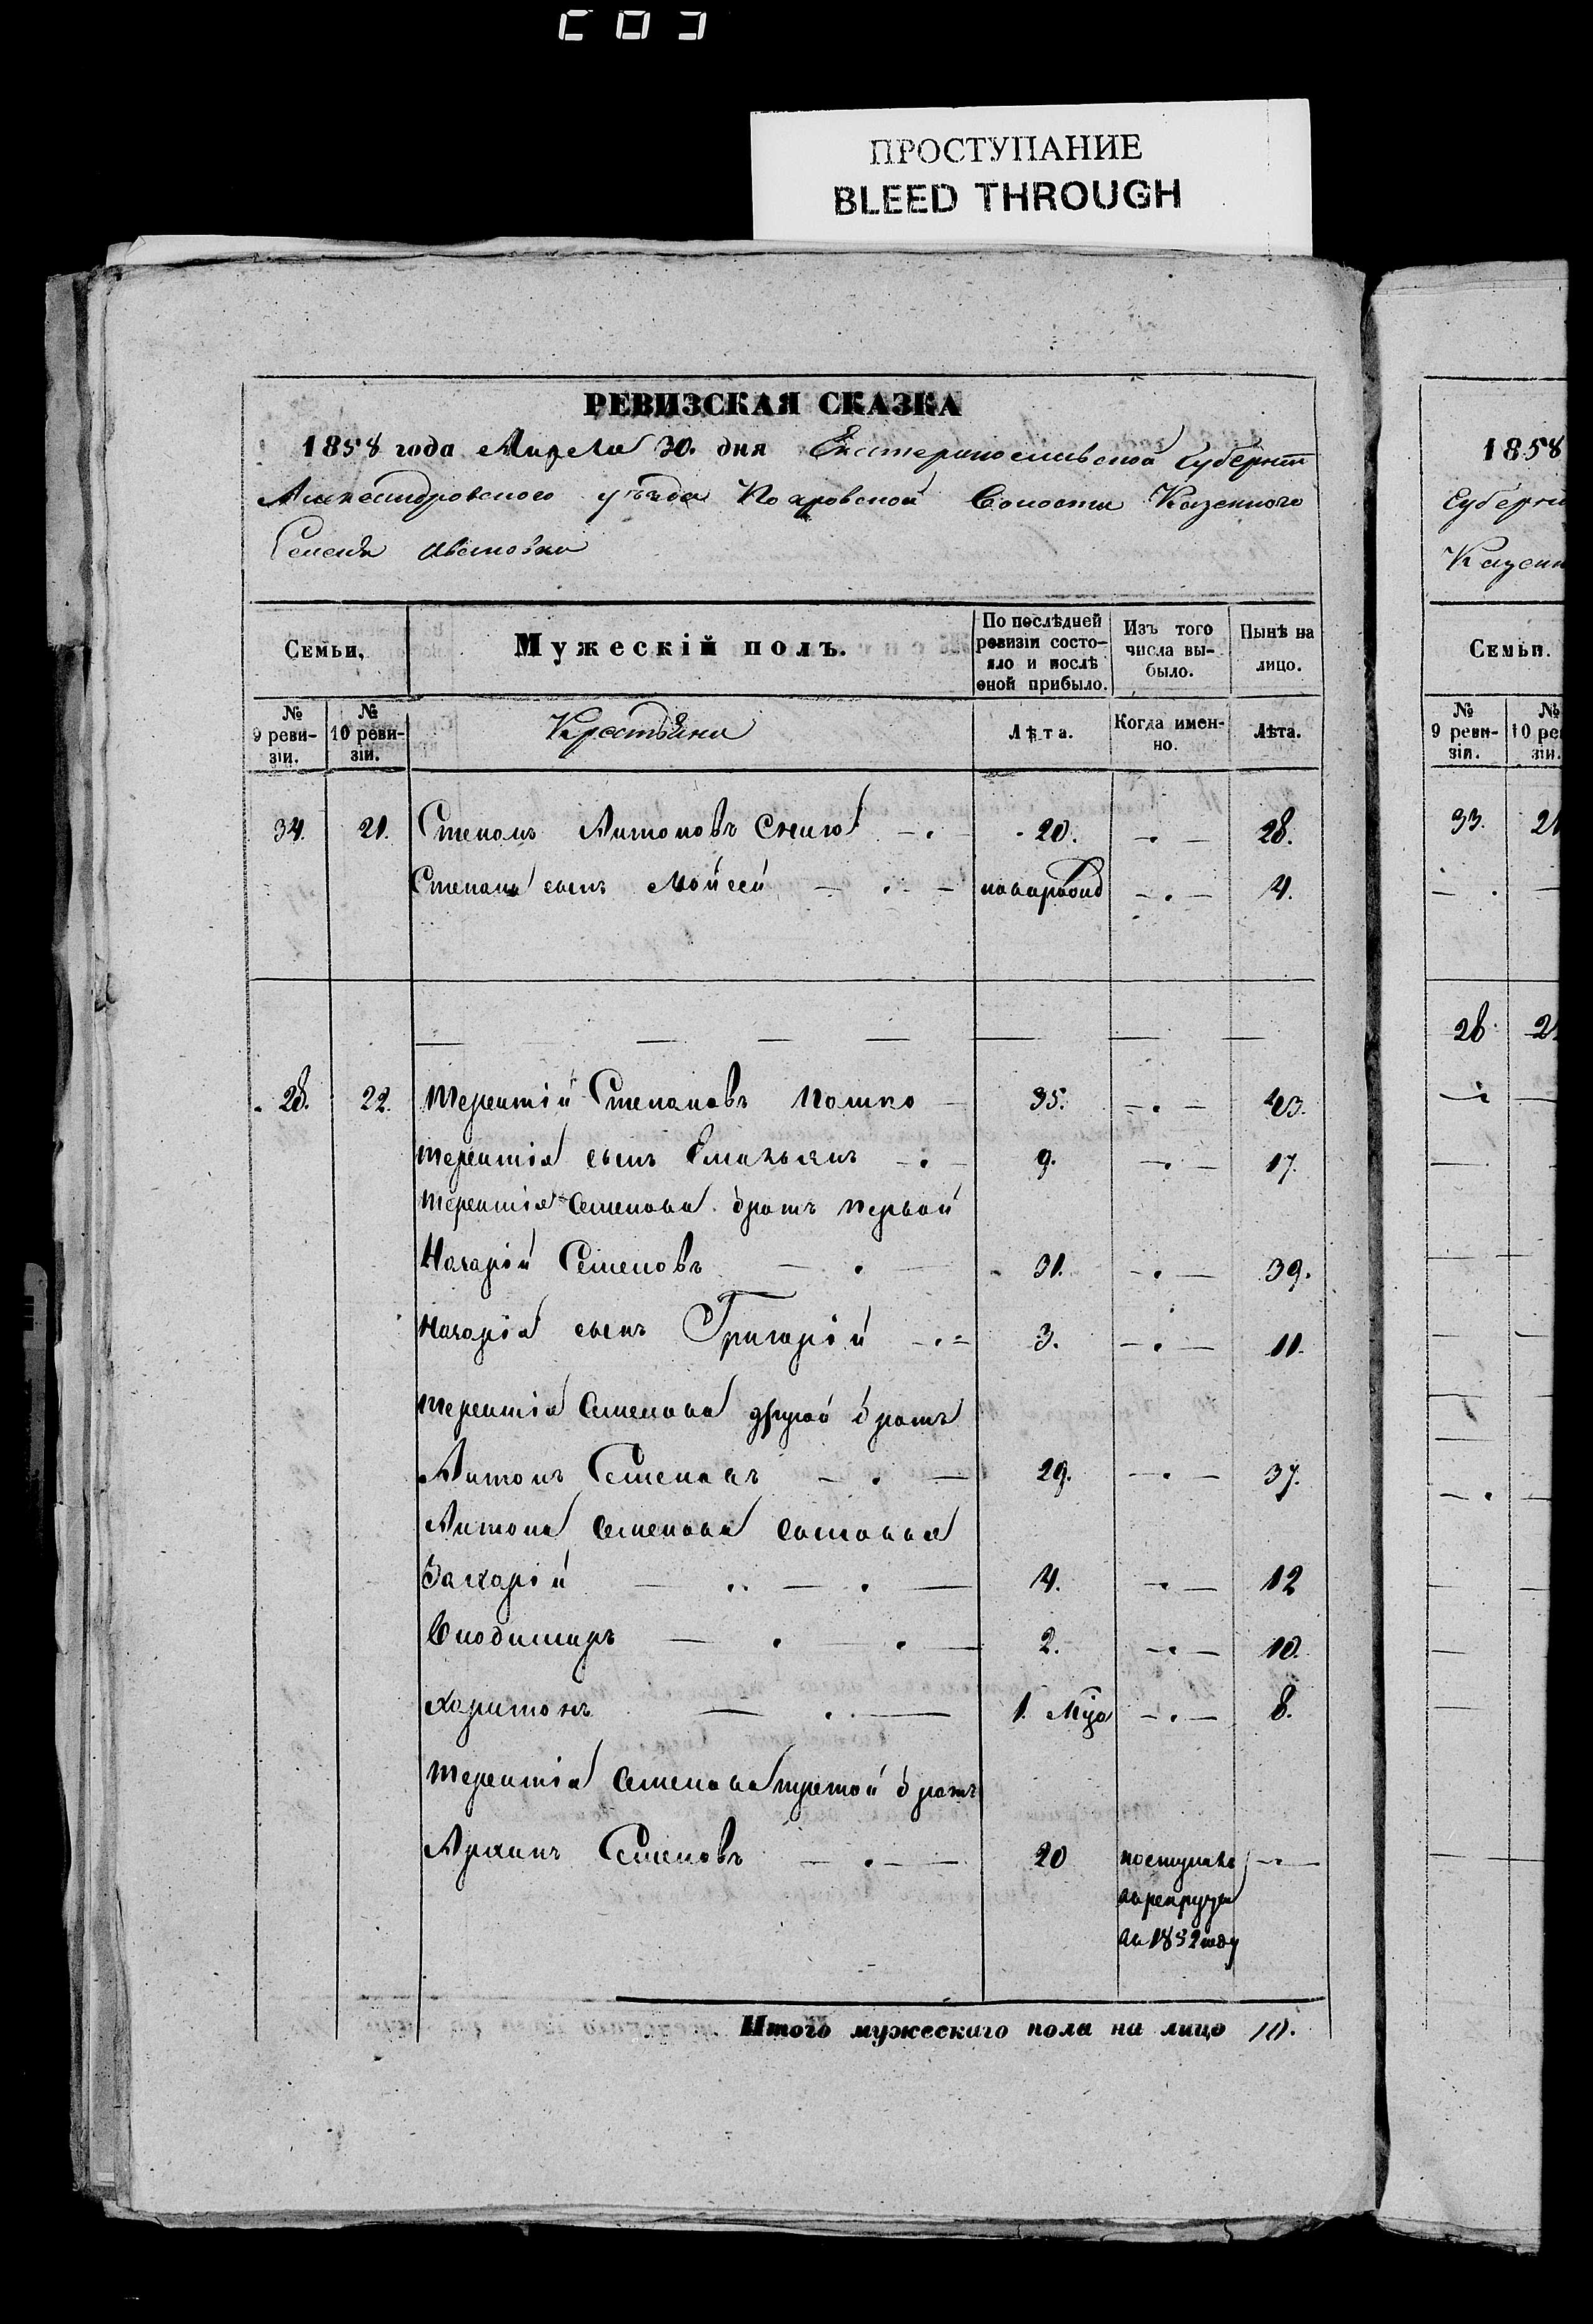 ПРОСТУПАНИЕ
BLEED THROUGH
РЕВИЗСКАЯ СКАЗКА
1858 года Апреля 30. дня Екатеринославской Губернии
Александровского уезда Покровской Волости Казенного
Селения
Семьи, Мужескій полъ. По послѣдней ревизіи состояло и послѣ оной прибыло. Изъ того числа выбыло. Нынѣ на лицо.
№ 9 ревизіи. № 10 ревизіи. Крестьяни Лѣта. Когда именно. Лѣта.
34. 21. Степанъ Антоновъ 20. 28.
Степана сынъ Мойсей 4.
28. 22. Терентій 35. 43.
Терентія сынъ Емельянъ 9. 17.
Терентія Семенова братъ первой
Назарій Семеновъ 31. 39.
Назарія сынъ Григорій 3. 11.
Терентія Семенова другой братъ
Антонъ Семеновъ 29. 37.
Антона Семенова сыновья
Захарій 4. 12
Влодимиръ 2. 10.
Харитонъ 1. 8.
Терентія Семенова третой братъ
Архипъ Семеновъ 20
Итого мужескаго пола на лицо 10.
1858
Губерни
Казен
Семьи.
№ 9 ревизіи. №
33. 2
28. 2